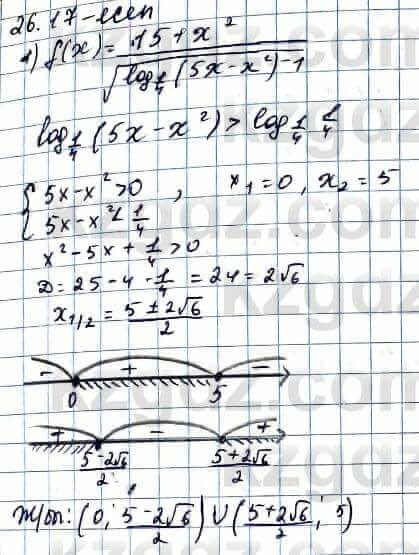 26.17-есеп
1) f(x) = 15 + x² / √(log_{1/4}(5x-x²)-1)
log_{1/4}(5x-x²) > log_{1/4} 1/4
{ 5x-x² > 0 , x₁ = 0, x₂ = 5
5x-x² < 1/4
x² - 5x + 1/4 > 0
D = 25 - 4 · 1/4 = 24 = 2√6
x_{1/2} = (5 ± 2√6)/2
- + -
0 5
+ - +
(5-2√6)/2 (5+2√6)/2
Ж/бы: (0; (5-2√6)/2) ∪ ((5+2√6)/2; 5)
kzgdz.com